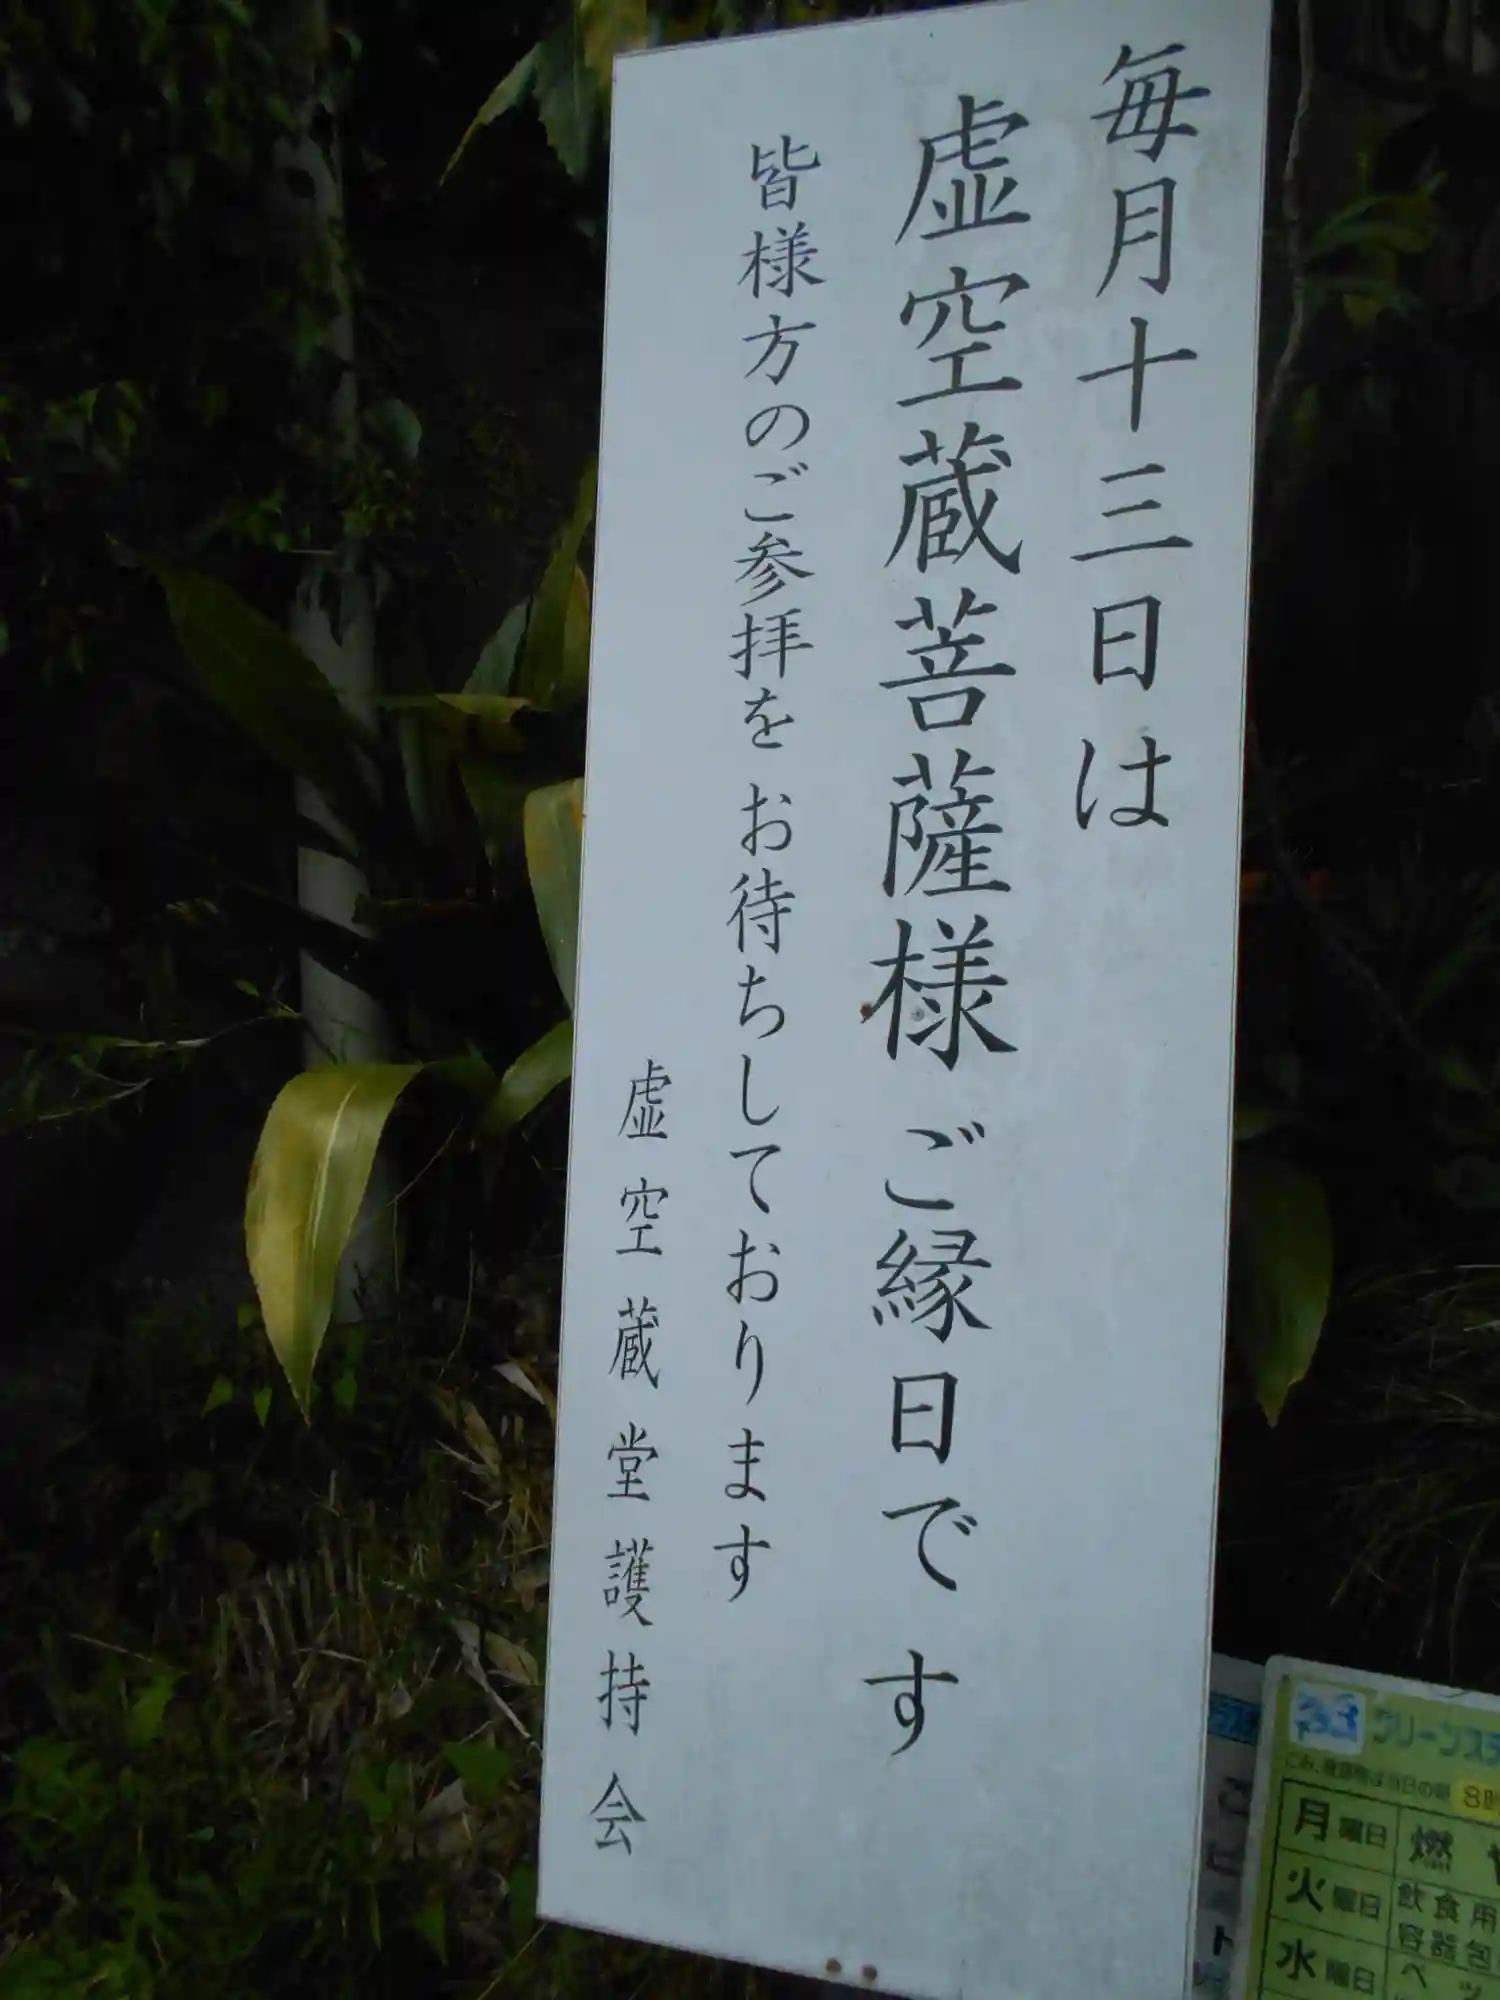 毎月十三日は
虚空蔵菩薩様ご縁日です
皆様方のご参拝をお待ちしております
虚空蔵堂護持会
クリーンステ
月曜日 燃
火曜日 飲食用
容器包
水曜日 ペッ